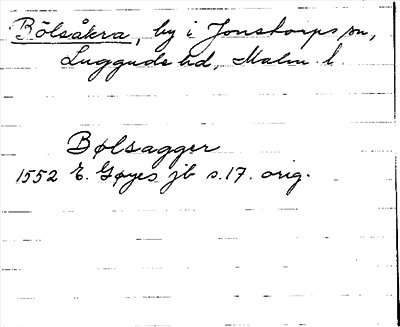 Bölsåkra, by i Jonstorps sn,
Luggude hd, Malm. l.
Bølsagger
1552 E. Gøyes jb s. 17. orig.